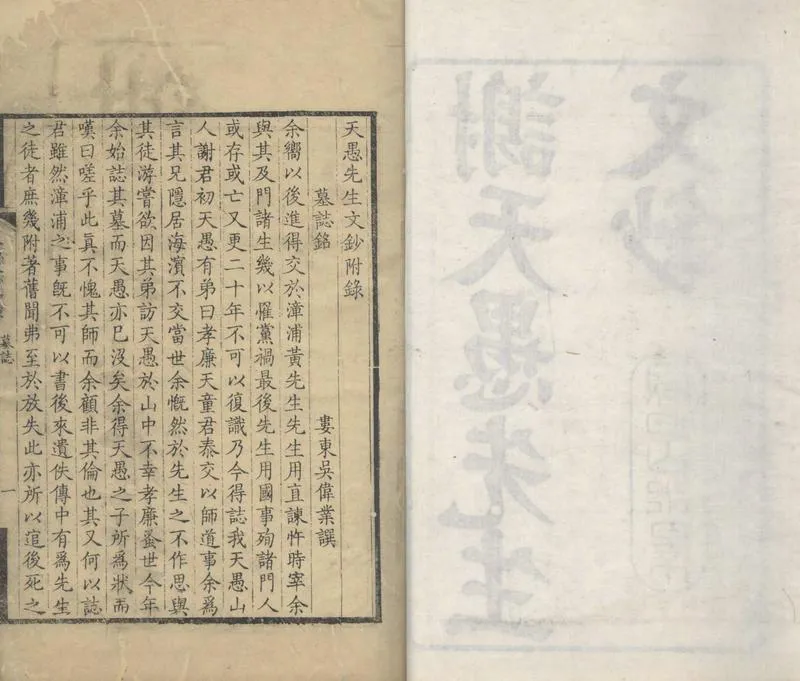 謝天愚先生
文鈔
天愚先生文鈔附錄
墓誌銘　婁東吳偉業譔
余嚮以後進得交於漳浦黃先生先生用直諫忤時宰余
與其及門諸生幾以罹黨禍最後先生用國事殉諸門人
或存或亡又更二十年不可以復識乃今得誌我天愚山
人謝君初天愚有弟曰孝廉天童君泰交以師道事余爲
言其兄隱居海濱不交當世余慨然於先生之不作思與
其徒游嘗欲因其弟訪天愚於山中不幸孝廉蚤世今年
余始誌其墓而天愚亦已沒矣余得天愚之子所爲狀而
嘆曰嗟乎此真不愧其師而余顧非其倫也其又何以誌
君雖然漳浦之事旣不可以書後來遺佚傳中有爲先生
之徒者庶幾附著舊聞弗至於放失此亦所以逭後死之
墓誌
一